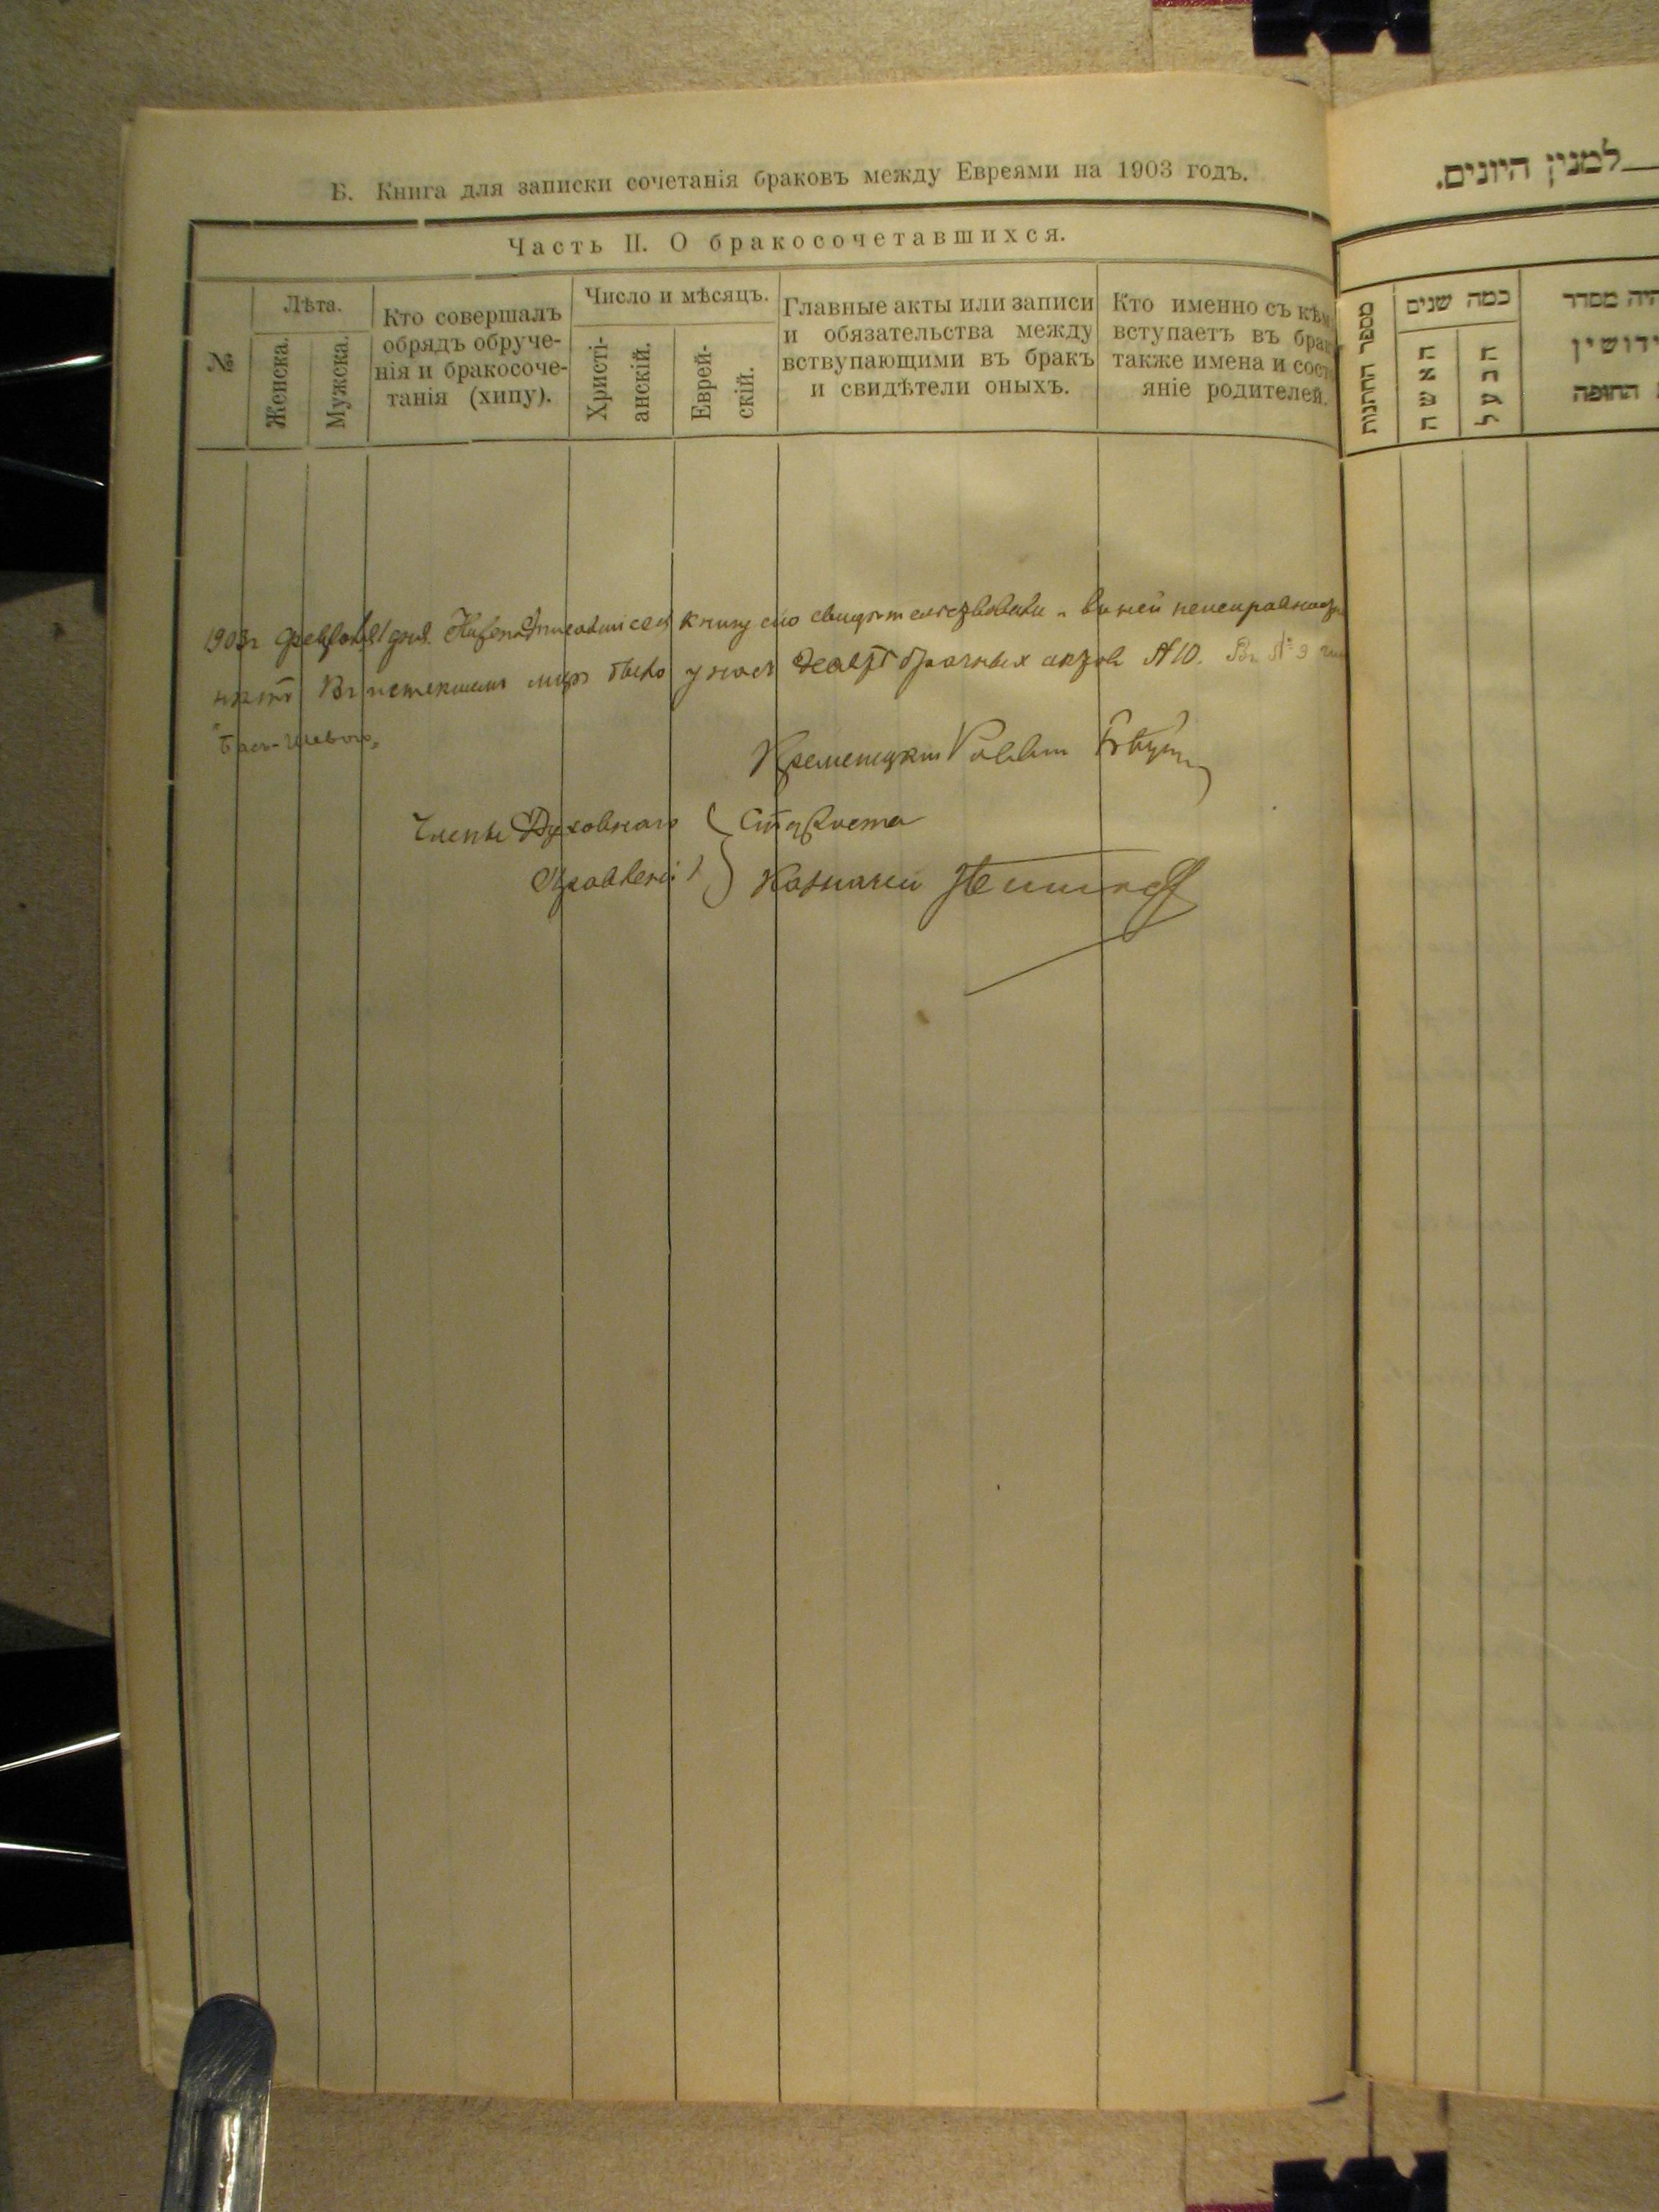 Б. Книга для записки сочетанія браковъ между Евреями на 1903 годъ.
Часть II. О бракосочетавшихся.
№
Лѣта.
Женска.
Мужска.
Кто совершалъ
обрядъ обруче-
нія и бракосоче-
танія (хипу).
Число и мѣсяцъ.
Христі-
анскій.
Еврей-
скій.
Главные акты или записи
и обязательства между
вствупающими въ бракъ
и свидѣтели оныхъ.
Кто именно съ кѣм
вступаетъ въ брак
также имена и сост
яніе родителей.
1903г Февраля 1 дня. книгу сію свидѣтельствовали и въ ней
нѣтъ Въ истекшемъ было у насъ брачных актов №10. Въ № 9
"Бася-Шева"
Кременецкій Раввин
Члены Духовнаго Староста
Правленія Казначей
למנין היונים.
מספר החתונות
כמה שנים
האשה
הבעל
היה מסדר
ידושין
החופה